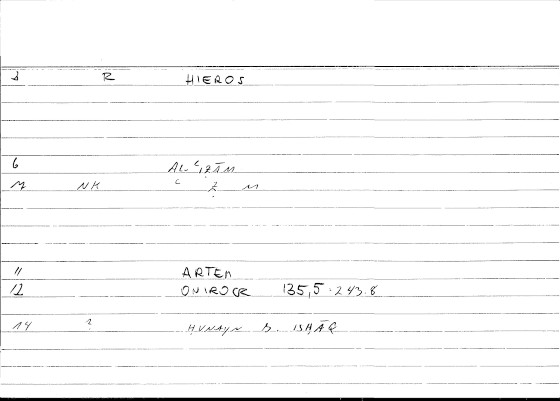 R HIEROS
6 AL ʿIẒĀM
NK ʿ Ẓ M
11 ARTEM
12 ONIROCR 135,5 · 243.8
14 ? ḤUNAYN B. ISḤĀQ